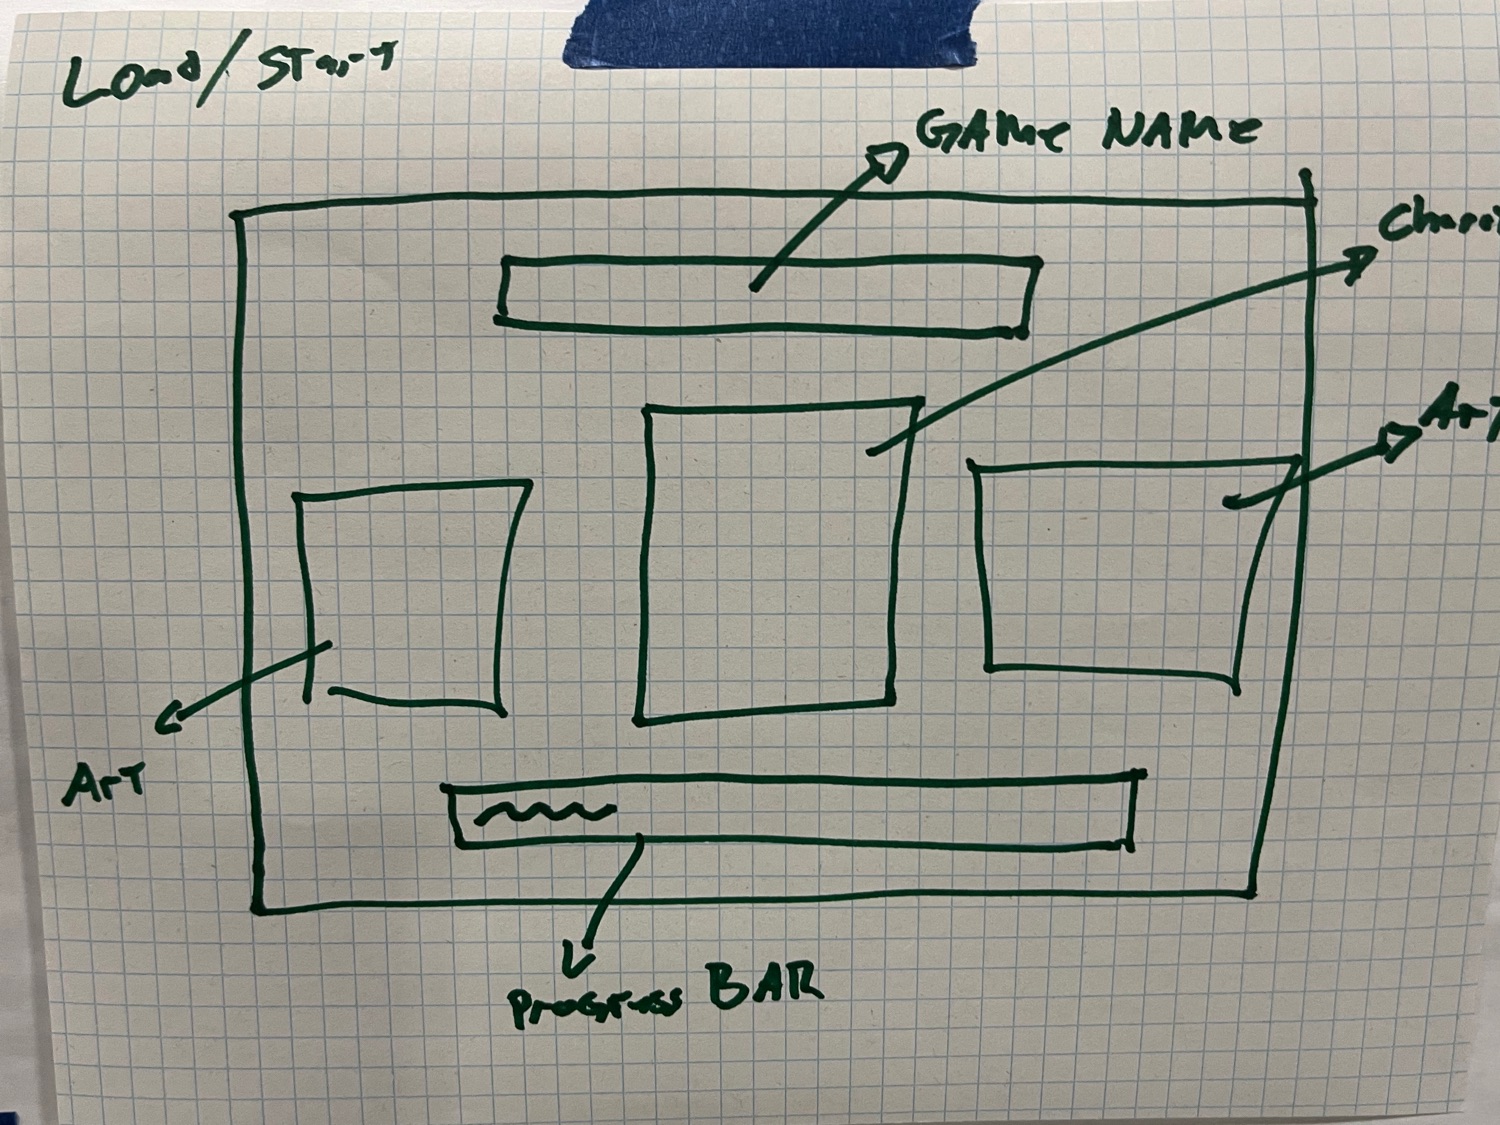 Load/Start
GAMe NAMe
Art
Art
Progress BAR